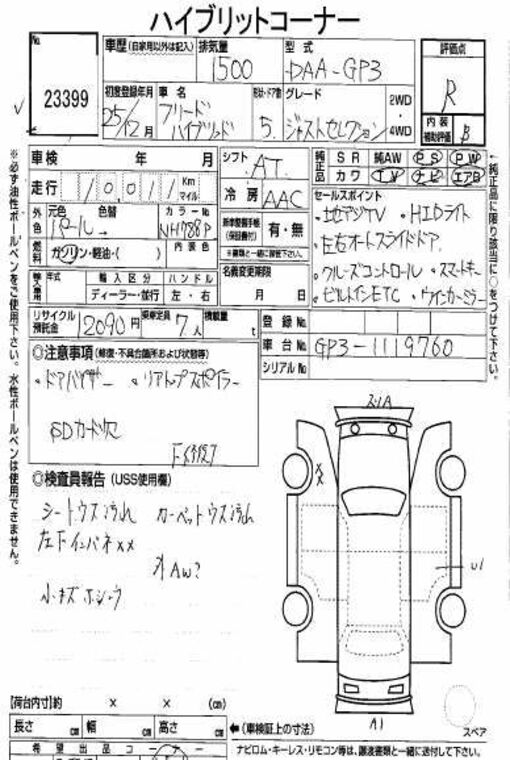 ハイブリットコーナー
No. 23399
車歴 (自家用以外は記入) 排気量 1500 型式 DAA-GP3 評価点 R
初度登録年月 25/12月 車名 フリードハイブリッド 形状・ドア数 5 グレード ジャストセレクション 2WD 4WD 内装補助評価 B
車検 年 月 シフト AT 純正品 SR 純AW PS PW
カワ TV ナビ エアB
走行 10,011 Km マイル 冷房 AAC
セールスポイント
・地デジTV ・HIDライト
・左右オートスライドドア
・クルーズコントロール ・スマートキー
・ビルトインETC ・ウインカーミラー
外色 元色 パール 色替 カラーNo. NH788P 内装色
新車整備手帳(保証書付) 有・無
※書類と一緒に保管して下さい。
燃料 ガソリン・軽油・( )
輸入車用 年式 輸入区分 ハンドル
ディーラー・並行 左・右
名義変更期限 月 日
リサイクル預託金 12090円 乗車定員 7人 積載量 t
登録No.
車台No. GP3-1119760
シリアルNo.
◎注意事項 (修復・不具合箇所および状態等)
・ドアバイザー ・リアトップスポイラー
SDカード欠
◎検査員報告 (USS使用欄)
シートウス汚れ カーペットウス汚れ
左下インパネ××
オAW?
小キズ ホショウ
A1
U1
スペア
【荷台内寸】約 × × (cm)
長さ cm 幅 cm 高さ cm ←(車検証上の寸法)
希望出品コーナー
ナビロム・キーレス・リモコン等は、譲渡書類と一緒に送付して下さい。
※必ず油性ボールペンをご使用下さい。水性ボールペンは使用できません。
←純正品に限り該当に○をつけて下さい。